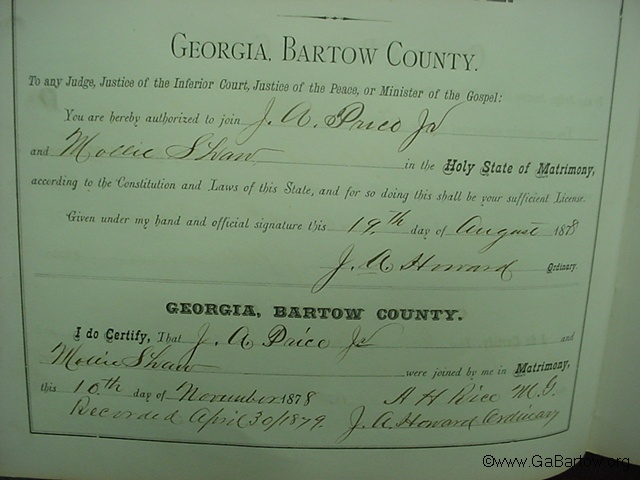 GEORGIA, BARTOW COUNTY.
To any Judge, Justice of the Inferior Court, Justice of the Peace, or Minister of the Gospel:
You are hereby authorized to join J. A. Price Jr
and Mollie Shaw in the Holy State of Matrimony,
according to the Constitution and Laws of this State, and for so doing this shall be your sufficient License.
Given under my hand and official signature this 19th day of August 1878
J. A Howard Ordinary.
GEORGIA, BARTOW COUNTY.
I do Certify, That J. A Price Jr and
Mollie Shaw were joined by me in Matrimony,
this 10th day of November 1878 A H Rice M.G.
Recorded April 30/1879. J. A Howard Ordinary
©www.GaBartow.org